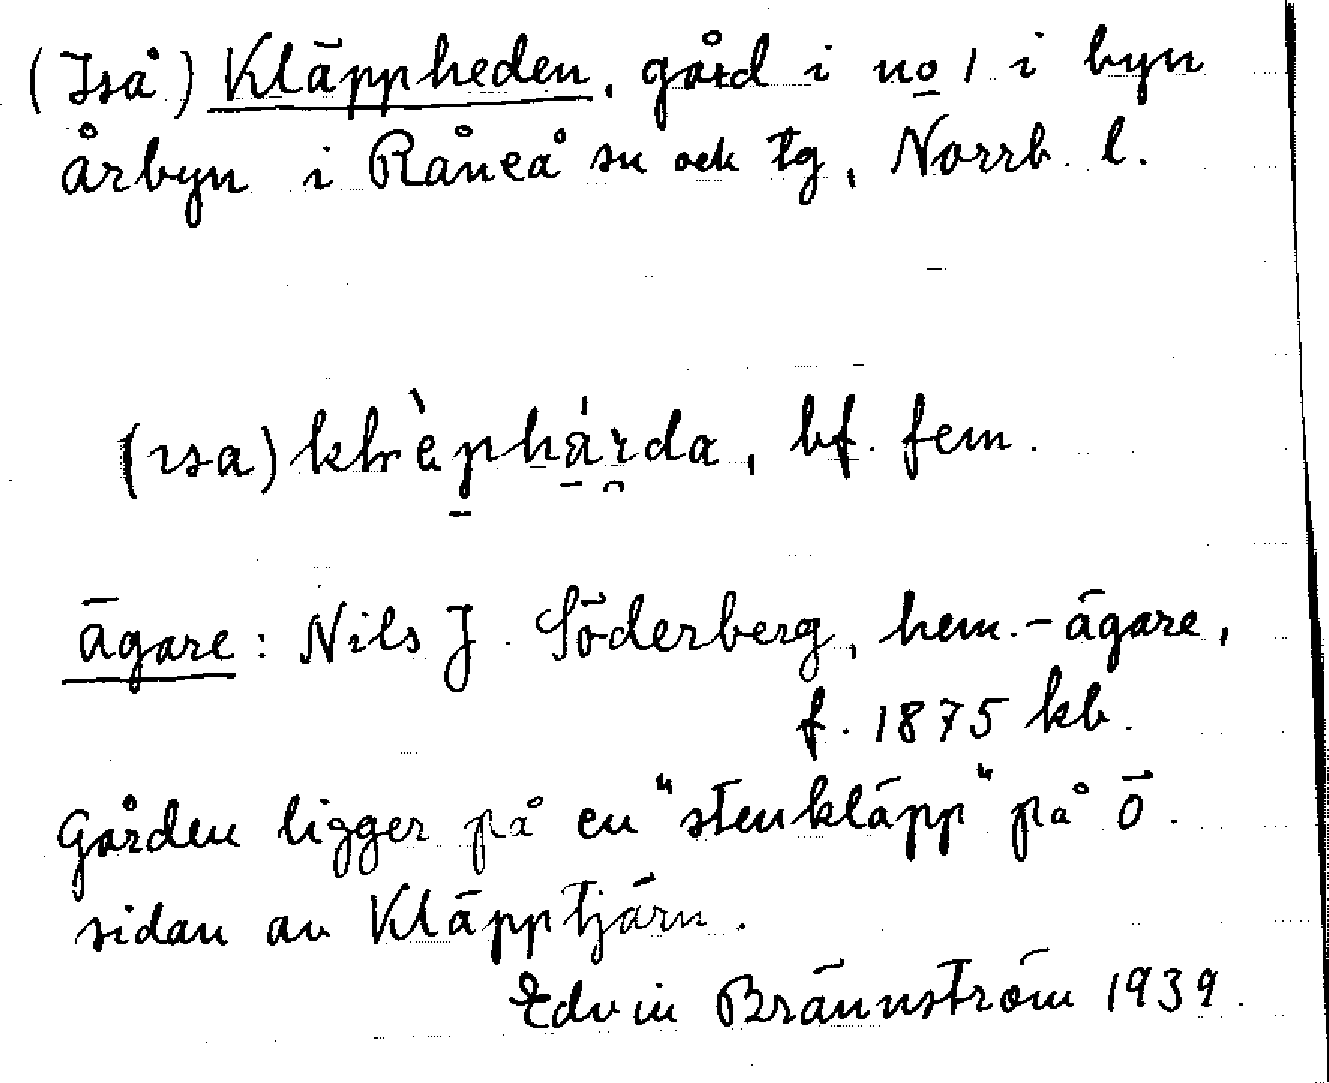 (Iså) Kläppheden, gård i no 1 i byn
årbyn i Råneå sn och tg, Norrb. l.
bf. fem.
ägare: Nils J. Söderberg, hem.-ägare,
f. 1875 kb.
Gården ligger på en "stenkläpp" på ö.
sidan av Kläpptjärn.
Edvin Brännström 1939.